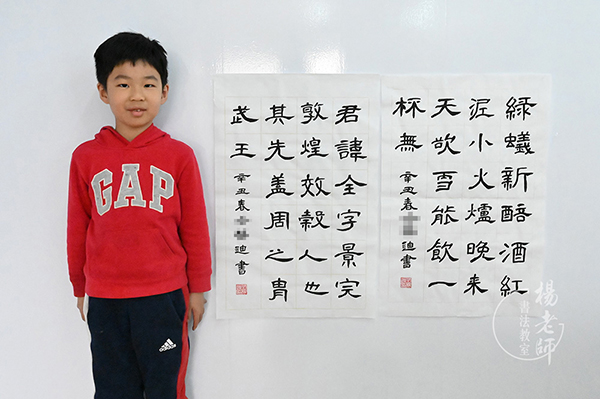 綠蟻新醅酒紅
泥小火爐晚来
天欲雪能飲一
杯無
辛丑春迪書
君諱全字景完
敦煌效穀人也
其先蓋周之冑
武王
辛丑春迪書
GAP
adidas
楊老師
書法教室